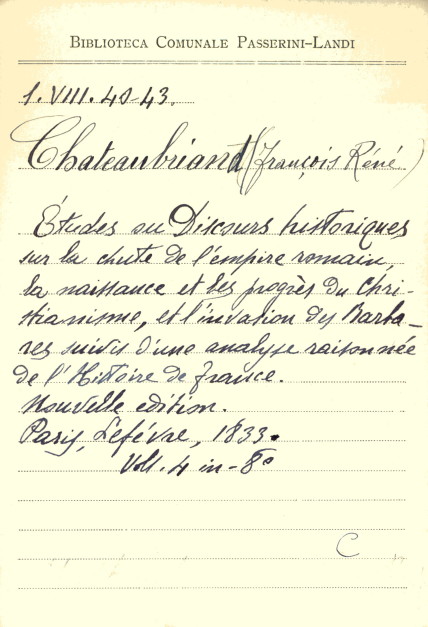 BIBLIOTECA COMUNALE PASSERINI-LANDI
1.VIII.40-43.
Chateaubriand (François Réné)
Études ou Discours historiques
sur la chute de l'empire romain,
la naissance et les progrès du Chri-
stianisme, et l'invasion des Barba-
res suivis d'une analyse raisonnée
de l'Histoire de France.
Nouvelle edition.
Paris, Lefévre, 1833.
Voll. 4 in-8º
C